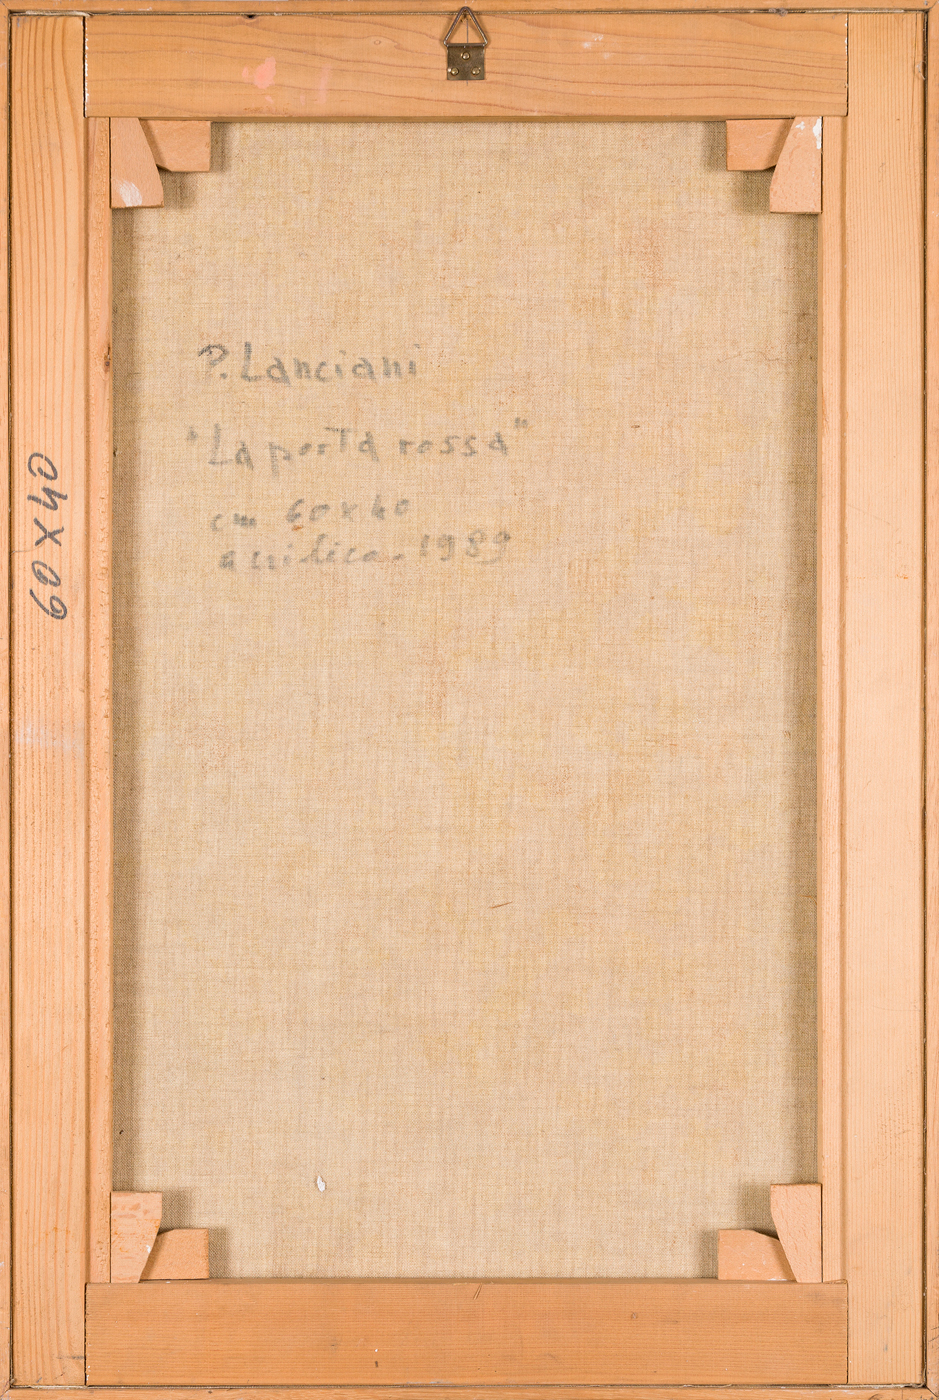 P. Lanciani
"La porta rossa"
cm 60x40
acrilico - 1989
60 x 40